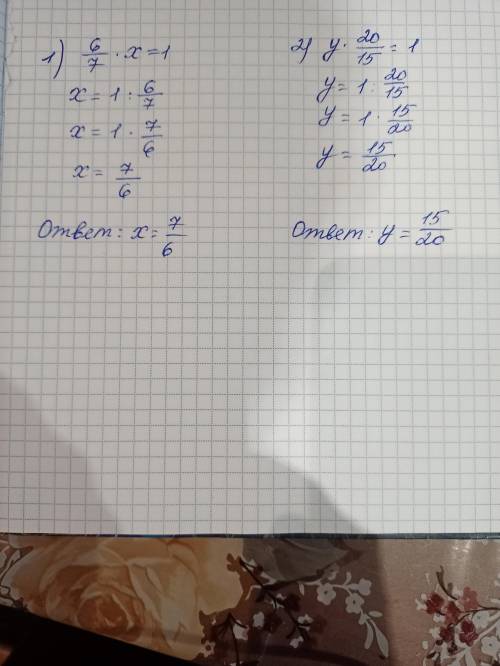 1) 6/7 · x = 1
x = 1 : 6/7
x = 1 · 7/6
x = 7/6
Ответ: x = 7/6
2) y · 20/15 = 1
y = 1 : 20/15
y = 1 · 15/20
y = 15/20
Ответ: y = 15/20